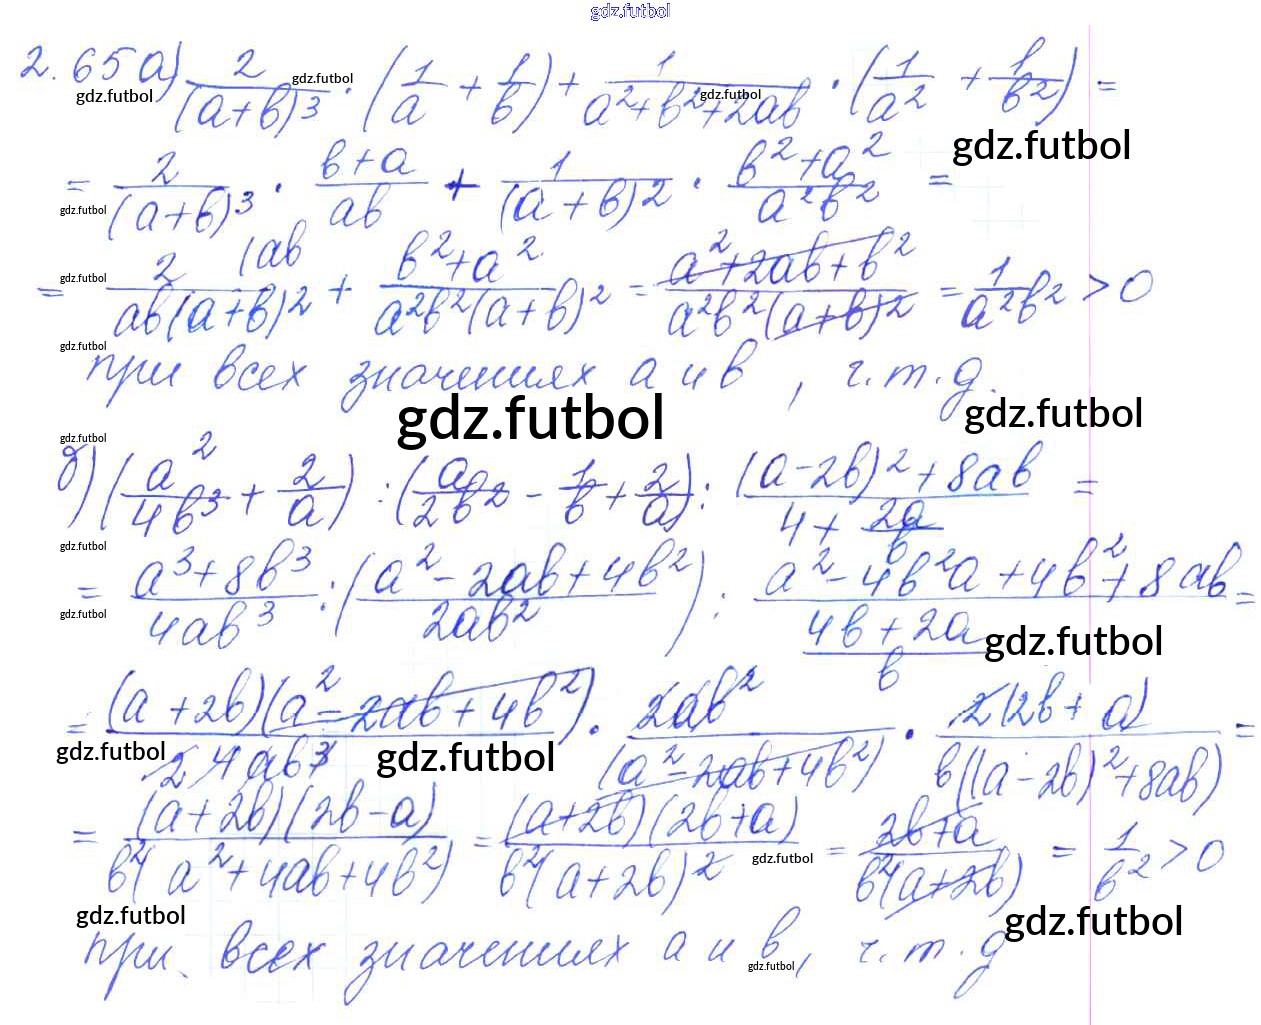 gdz.futbol
2.65 а) 2/(a+b)³ · (1/a + 1/b) + 1/(a²+b²+2ab) · (1/a² + 1/b²) =
gdz.futbol gdz.futbol gdz.futbol
gdz.futbol
= 2/(a+b)³ · (b+a)/(ab) + 1/(a+b)² · (b²+a²)/(a²b²) =
gdz.futbol
= 2 (ab/(ab(a+b)²) + (b²+a²)/(a²b²(a+b)²) = (a²+2ab+b²)/(a²b²(a+b)²) = 1/(a²b²) > 0
gdz.futbol
gdz.futbol
при всех значениях a и b, ч.т.д.
gdz.futbol gdz.futbol
gdz.futbol
б) (a²/(4b³) + 2/a) : (a/(2b²) - 1/b + 2/a) : ((a-2b)²+8ab)/(4 + 2a/b) =
gdz.futbol
= (a³+8b³)/(4ab³) : ((a²-2ab+4b²)/(2ab²)) : (a²-4b²a+4b²+8ab)/((4b+2a)/b) =
gdz.futbol gdz.futbol
= (a+2b)(a²-2ab+4b²)/(2 4ab³) · 2ab²/(a²-2ab+4b²) · 2(2b+a)/(b((a-2b)²+8ab)) =
gdz.futbol gdz.futbol
= (a+2b)(2b-a)/(b²(a²+4ab+4b²)) = (a+2b)(2b+a)/(b²(a+2b)²) = (2b+a)/(b²(a+2b)) = 1/b² > 0
gdz.futbol
gdz.futbol gdz.futbol
при всех значениях a и b, ч.т.д
gdz.futbol